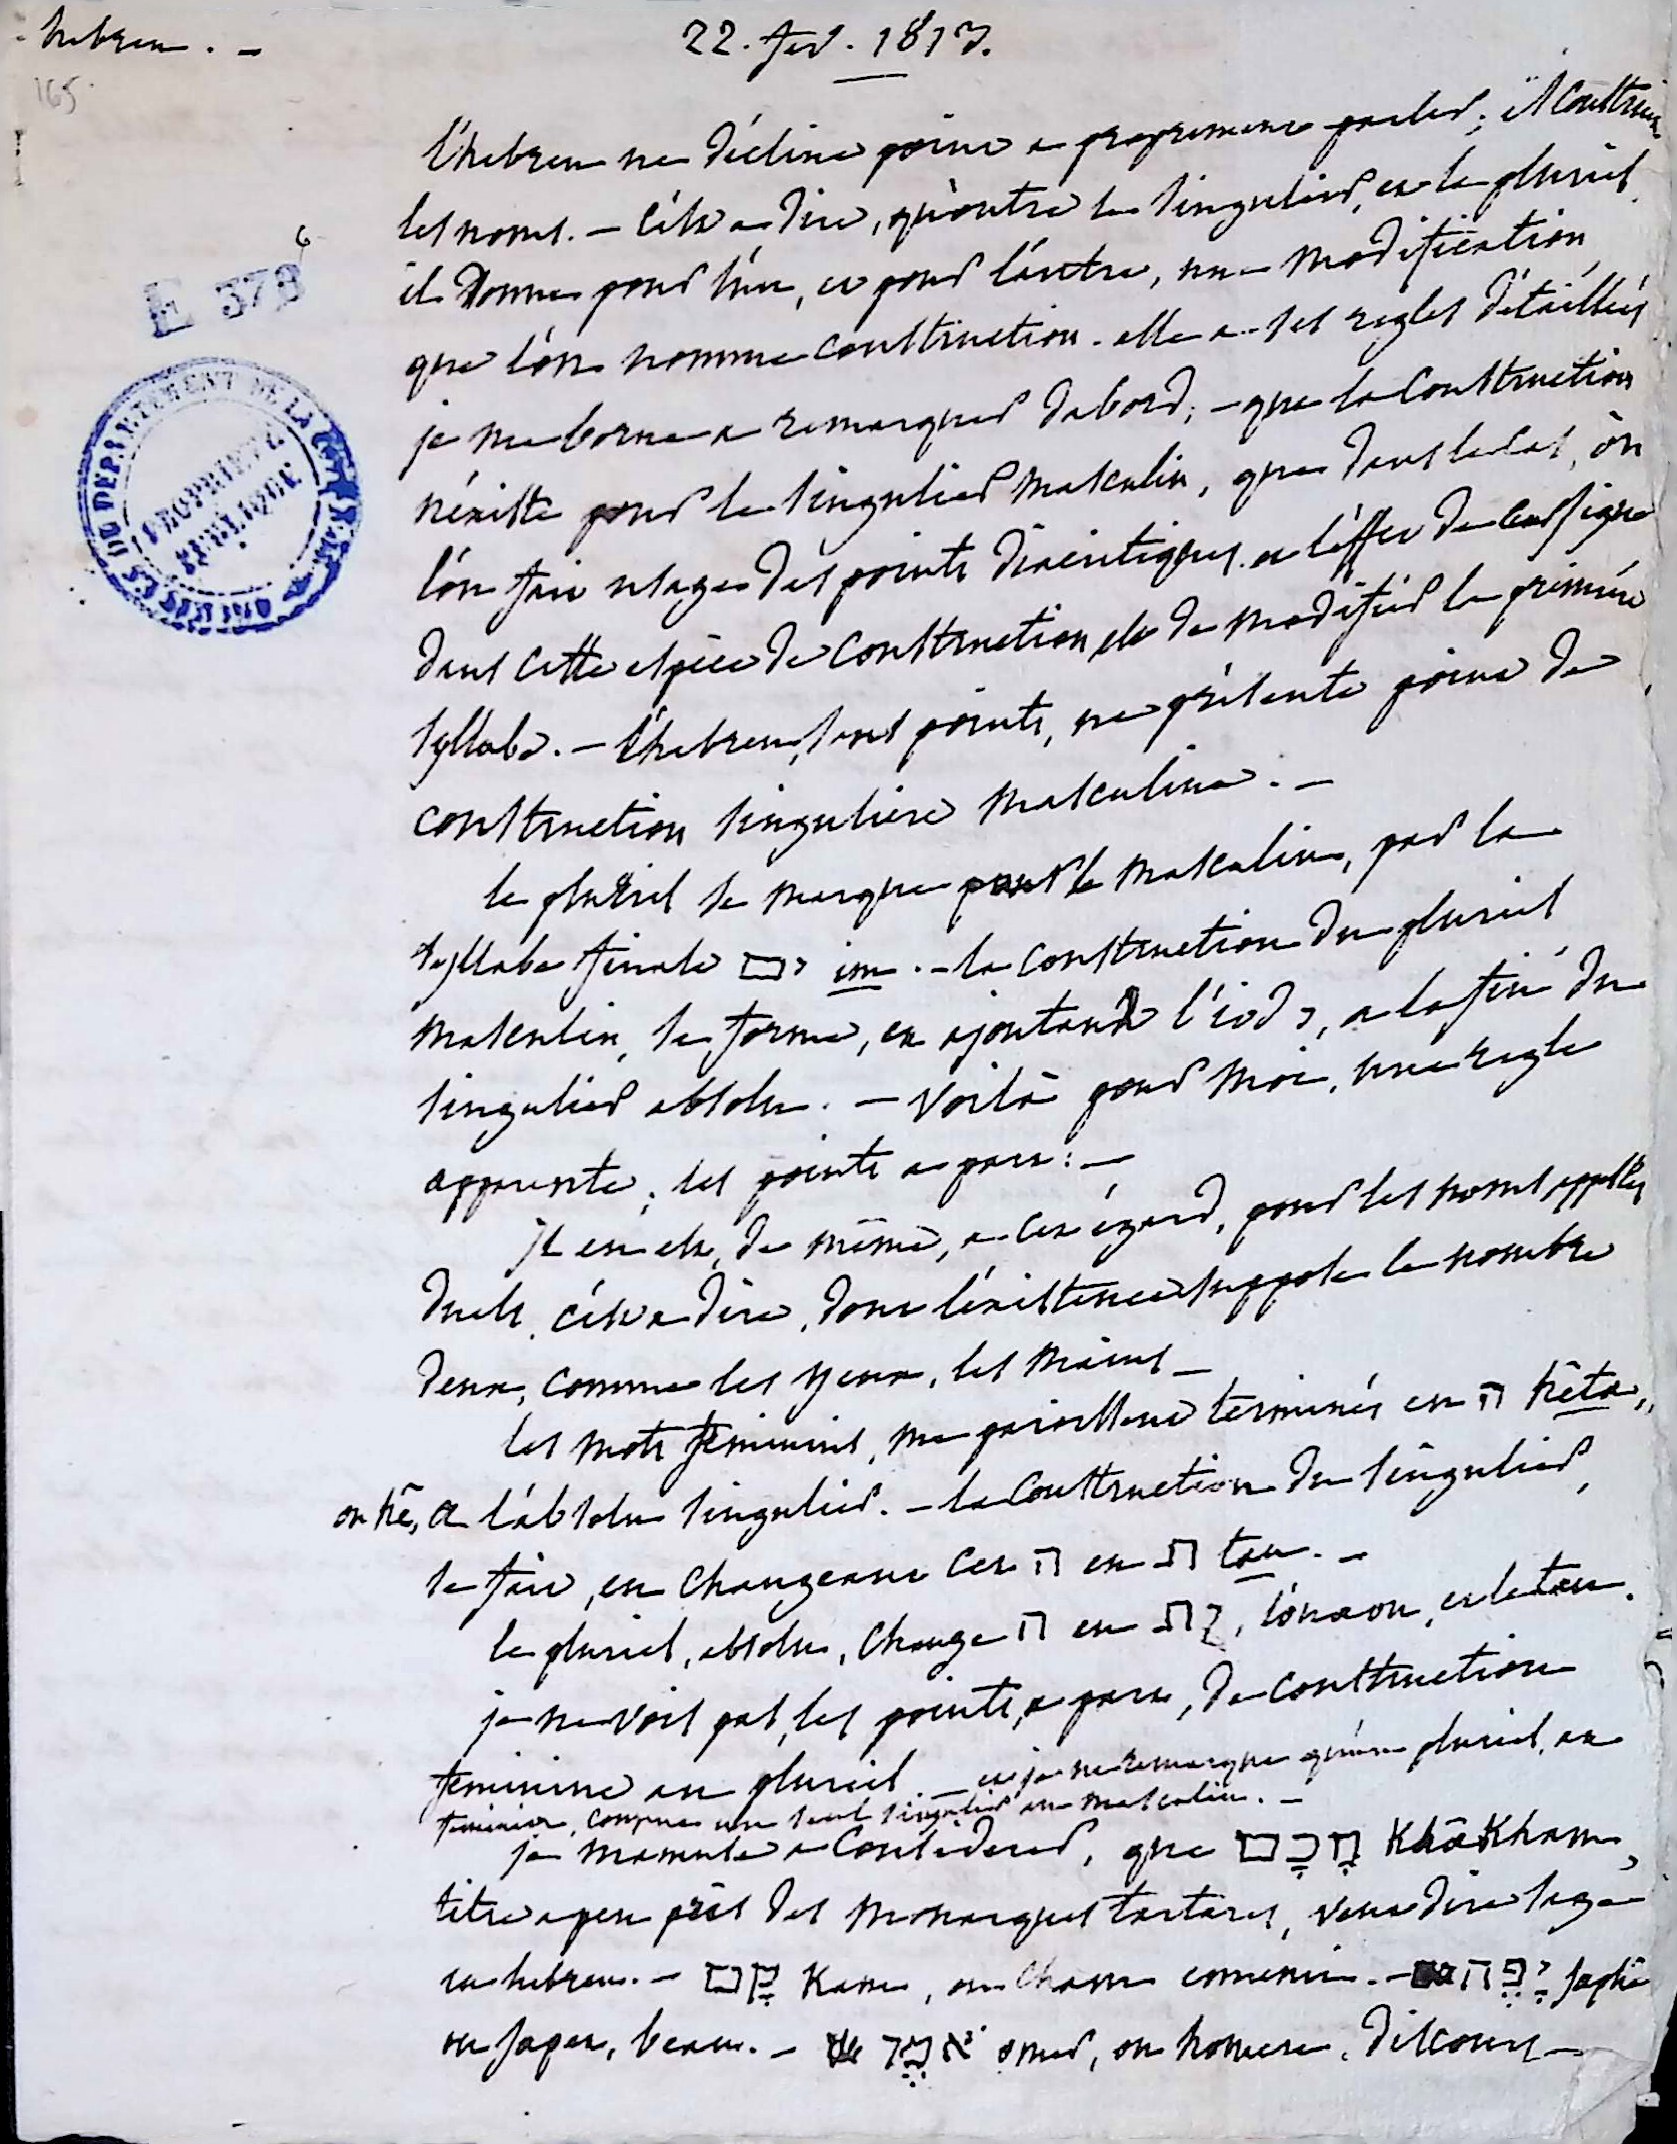 hebreu. -
22. fev. 1817.
165.
l'hebreu ne décline point a proprement parler; il construit
les noms. - c'est a dire, qu'outre le singulier, et le pluriel,
il donne pour l'un, et pour l'autre, une modification
que l'on nomme construction. elle a ses regles détaillées
je me borne a remarquer dabord, - que la construction
n'existe pour le singulier masculin, que dans le cas, où
l'on fait usage des points diacritiques. et l'effet de ces signes
dans cette espèce de construction, est de modifier la premiere
syllabe. - l'hebreu, sans points, ne présente point de
construction singuliere masculine. -
le pluriel se marque pour le masculin, par la
syllabe finale ים im. - la construction du pluriel
masculin, se forme, en ajoutant l'iod י, a la fin du
singulier absolu. - voilà pour moi, une regle
apparente, les points a part: -
il en est, de même, a cet égard, pour les noms appellés
duels, c'est a dire, dont l'existence suppose le nombre
deux, comme les yeux, les mains -
les mots feminins, me paraissent terminés en ה hêta,
ou hê, a l'absolu singulier. - la construction du singulier,
se fait, en changeant cet ה en ת tau. -
le pluriel, absolu, change ה en ות, l'ou ou, et le tau.
je ne vois pas, les points, a part, de construction
feminine au pluriel - et je ne remarque qu'un pluriel, au
feminin, comme un seul singulier au masculin. -
je m'amuse a considerer, que חָכָם Khâkham,
titre a peu près des monarques tartares, veut dire sage
en hebreu. - קָם Kam, ou Cham ennemi. - יָפֶה japhé
ou japet, beau. - אֹמֶר omer, ou homere, discours -
E 378
6
ARCHIVES DU DÉPARTEMENT DE LA
PROPRIÉTÉ
PUBLIQUE